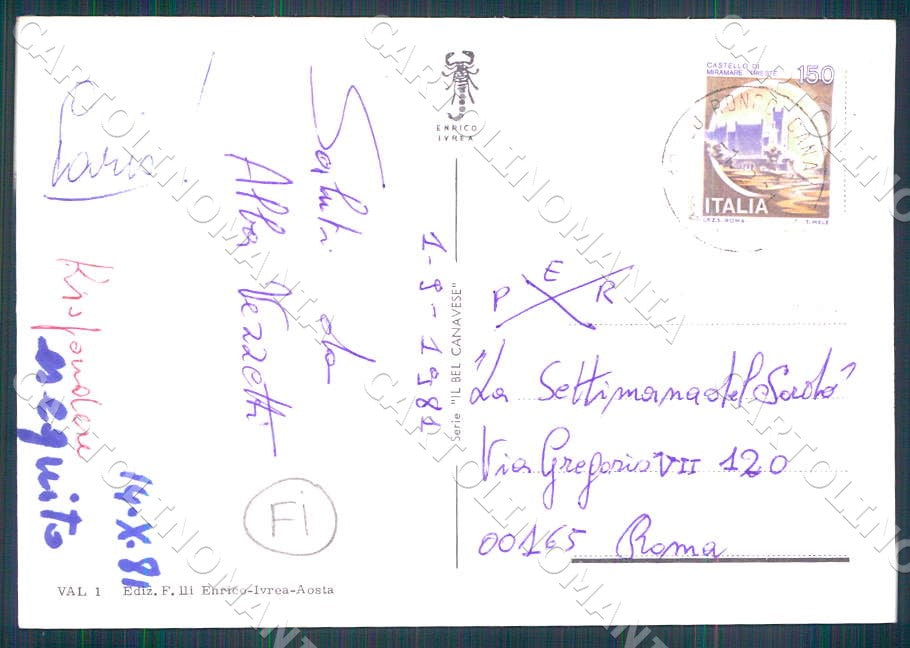 CASTELLO DI
MIRAMARE TRIESTE 150
ITALIA
I.P.Z.S. ROMA T. MELE
ENRICO
IVREA
Saluti da
Alba Vezzetti
1-9-1981
Serie "IL BEL CANAVESE"
P E R
"La Settimana del Sordo"
Via Gregorio VII 120
00165 Roma
Rispondere
14.X.81
FI
VAL 1 Ediz. F.lli Enrico-Ivrea-Aosta
CARTOLINOMANIA